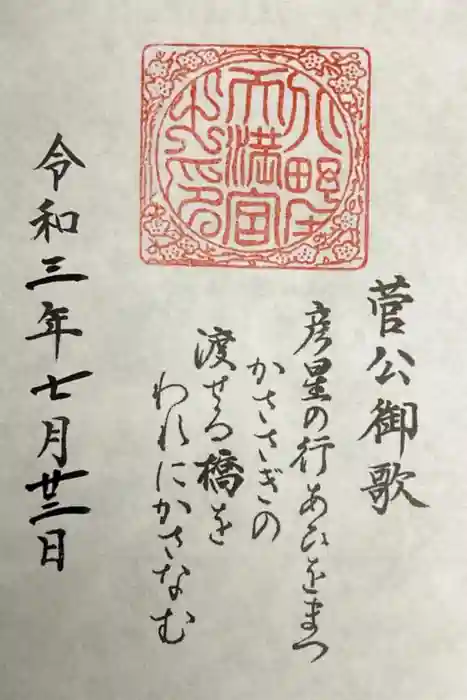 天満宮
菅公御歌
彦星の行あひをまつ
かささぎの
渡せる橋を
われにかさなむ
令和三年七月廿二日